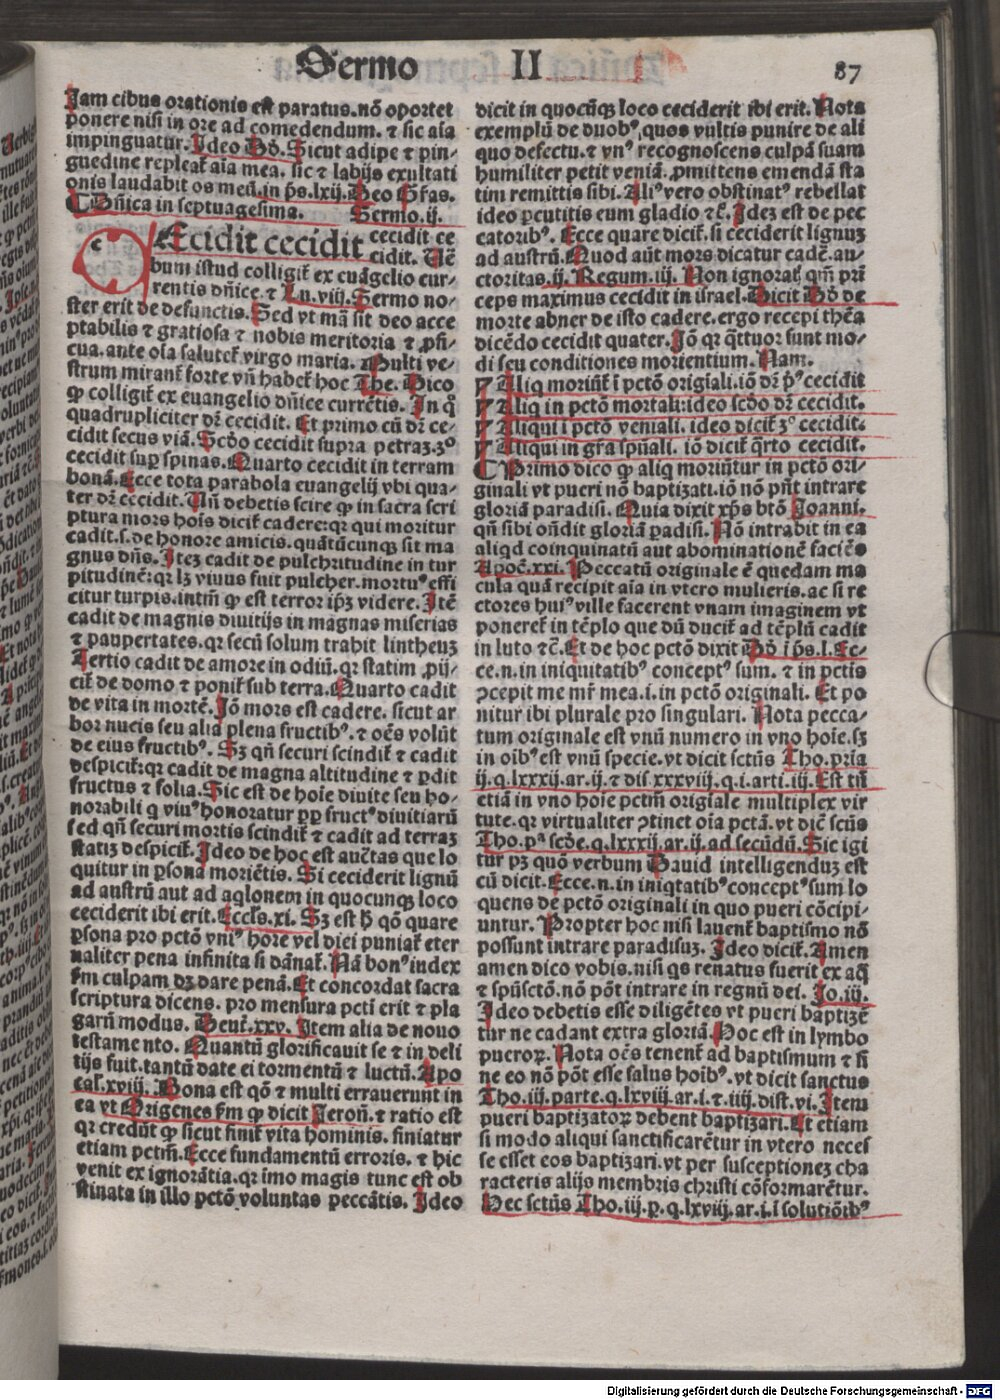 Sermo II 87
Jam cibus orationis est paratus. nō oportet
ponere nisi in ore ad comedendum. ⁊ sic aīa
impinguatur. Ideo Dō. Sicut adipe ⁊ pin-
guedine repleat̄ aīa mea. sic ⁊ labijs exultati
onis laudabit os meū. in p̄s. lxij. Deo Gr̄as.
Dn̄ica in septuagesima. Sermo. ij.
CEcidit cecidit cecidit ce
cidit. Uē
bum istud colligit̄ ex euāgelio cur-
rentis dn̄ice. ⁊ Lu. viij. Sermo no-
ster erit de defunctis. Sed vt mā sit deo acce
ptabilis ⁊ gratiosa ⁊ nobis meritoria ⁊ ꝓfi-
cua. ante oīa salutet̄ virgo maria. Multi ve-
strum mirant̄ forte vn̄ habet̄ hoc The. Dico
ꝙ colligit̄ ex euangelio dn̄ice currētis. In q̊
quadrupliciter dr̄ cecidit. Et primo cū dr̄ ce-
cidit secus viā. Scd̄o cecidit supra petraꝫ. 3º
cecidit suꝑ spinas. Quarto cecidit in terram
bonā. Ecce tota parabola euangelij vbi qua-
ter dr̄ cecidit. Un̄ debetis scire ꝙ in sacra scri
ptura mors hoīs dicit̄ cadere: qr̄ qui moritur
cadit. s. de honore amicis. quātūcunqꝫ sit ma
gnus dn̄s. Iteꝫ cadit de pulchritudine in tur
pitudinē: qr̄ lꝫ viuus fuit pulcher. mortuꝰ effi
citur turpis. intm̄ ꝙ est terror ip̄ꝫ videre. Itē
cadit de magnis diuitijs in magnas miserias
⁊ paupertates. qr̄ secū solum trahit lintheuꝫ
Tertio cadit de amore in odiū. qr̄ statim ꝓij-
cit̄ de domo ⁊ ponit̄ sub terra. Quarto cadit
de vita in mortē. Iō mors est cadere. sicut ar
bor nucis seu alia plena fructibꝰ. ⁊ oēs volūt
de eius fructibꝰ. Sꝫ qn̄ securi scindit̄ ⁊ cadit
despicit̄: qr̄ cadit de magna altitudine ⁊ ꝑdit
fructus ⁊ folia. Sic est de hoīe diuite seu ho-
norabili q̄ viuꝰ honoratur ꝓp̄ fructꝰ diuitiarū
sed qn̄ securi mortis scindit̄ ⁊ cadit ad terraꝫ
statiꝫ despicit̄. Ideo de hoc est auctas que lo
quitur in ꝑsona moriētis. Si ceciderit lignū
ad austrū aut ad aqlonem in quocunqꝫ loco
ceciderit ibi erit. Eccl̄s. xi. Sꝫ est h̄ qō quare
ꝑsona pro pctō vniꝰ hore vel diei puniat̄ eter
naliter pena infinita si dānat̄. Nā bonꝰ iudex
ſm culpam dꝫ dare penā. Et concordat sacra
scriptura dicens. pro mensura pcti erit ⁊ pla
garū modus. Deut̄. xxv. Item alia de nouo
testamento. Quantū glorificauit se ⁊ in deli
tijs fuit. tantū date ei tormentū ⁊ luctū. Apo
cal. xviij. Bona est qō ⁊ multi errauerunt in
ea vt Origenes ſm ꝙ dicit Ieroñ. ⁊ ratio est
qr̄ credūt ꝙ sicut finit̄ vita hominis. finiatur
etiam pctm̄. Ecce fundamentū erroris. ⁊ hic
venit ex ignorātia. qr̄ imo magis tunc est ob
stinata in illo pctō voluntas peccātis. Ideo
dicit in quocūqꝫ loco ceciderit ibi erit. Nota
exemplū de duobꝰ, quos vultis punire de ali
quo defectu. ⁊ vnꝰ recognoscens culpā suam
humiliter petit veniā. ꝓmittens emendā sta
tim remittis sibi. Aliꝰ vero obstinatꝰ rebellat
ideo ꝑcutitis eum gladio ⁊c̄. Ideꝫ est de pec
catoribꝰ. Ecce quare dicit̄. si ceciderit lignuꝫ
ad austrū. Quod aūt mors dicatur cadē. au-
ctoritas. ij. Regum. iij. Non ignorat̄ qm̄ pri
ceps maximus cecidit in israel. Dicit Dō de
morte abner de isto cadere. ergo recepi thēa
dicēdo cecidit quater. Iō qr̄ q̄ttuor sunt mo-
di seu conditiones morientium. Nam.
Aliq moriūt̄ i pctō origīali. iō dr̄ pꝰ cecidit
Aliq in pctō mortali: ideo scd̄o dr̄ cecidit.
Aliqui i pctō veniali. ideo dicit̄ 3º cecidit.
Aliqui in gr̄a spūali. iō dicit̄ q̄rto cecidit.
Primo dico ꝙ aliq moriūtur in pctō ori-
ginali vt pueri nō baptizati. iō nō pn̄t intrare
gloriā paradisi. Quia dixit xp̄s btō Joanni.
qn̄ sibi oñdit gloriā ꝑadisi. Nō intrabit in ea
aliqd coinquinatū aut abominationē faciēs
Apoc̄. xxi. Peccatū originale ē quedam ma
cula quā recipit aīa in vtero mulieris. ac si re
ctores huiꝰ ville facerent vnam imaginem vt
poneret̄ in tēplo que dū ducit̄ ad tēplū cadit
in luto ⁊c̄. Et de hoc pctō dixit Dō i p̄s. l. Ec-
ce. n. in iniquitatibꝰ conceptꝰ sum. ⁊ in pctis
ↄcepit me mr̄ mea. i. in pctō originali. Et po
nitur ibi plurale pro singulari. Nota pecca-
tum originale est vnū numero in vno hoīe. sꝫ
in oībꝰ est vnū specie. vt dicit sctūs Tho. pria
ij. q. lxxxij. ar. ij. ⁊ dis. xxxviij. q. i. arti. iij. Est tn̄
etiā in vno hoīe pctm̄ origīale multiplex vir
tute. qr̄ virtualiter ↄtinet oīa pctā. vt dic̄ scūs
Tho. pª scd̄e. q. lxxxij. ar. ij. ad secūdū. Sic igi
tur pꝫ quō verbum Dauid intelligenduꝫ est
cū dicit. Ecce. n. in iniqtatibꝰ conceptꝰ sum lo
quens de pctō originali in quo pueri cōcipi-
untur. Propter hoc nisi lauent̄ baptismo nō
possunt intrare paradisuꝫ. Ideo dicit̄. Amen
amen dico vobis. nisi qs renatus fuerit ex aq̄
⁊ spūsctō. nō pōt intrare in regnū dei. Jo. iij.
Ideo debetis esse diligētes vt pueri baptizē
tur ne cadant extra gloriā. Hoc est in lymbo
pueroꝝ. Nota oēs tenent̄ ad baptismum ⁊ si
ne eo nō pōt esse salus hoībꝰ. vt dicit sanctus
Tho. iij. parte. q. lxviij. ar. i. ⁊. iiij. dist. vi. Item
pueri baptizatoꝝ debent baptizari. Et etiam
si modo aliqui sanctificarētur in vtero neces
se esset eos baptizari. vt per susceptioneꝫ cha
racteris alijs membris christi cōformarētur.
Hec sctūs Tho. iij. p. q. lxviij. ar. i. i solutiōibꝰ
Digitalisierung gefördert durch die Deutsche Forschungsgemeinschaft - DFG